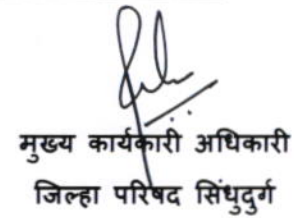 मुख्य कार्यकारी अधिकारी
जिल्हा परिषद सिंधुदुर्ग